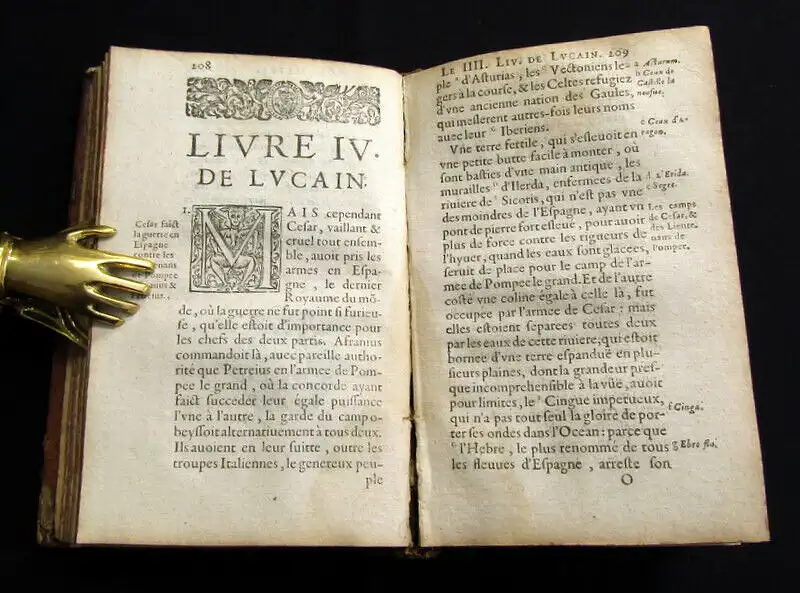 208
LIVRE IV.
DE LVCAIN.
1.
Cesar faict
la guerre en
Espagne
contre les
de Pompee
MAIS cependant
Cesar, vaillant &
cruel tout ensem-
ble, auoit pris les
armes en Espa-
gne, le dernier
Royaume du mõ-
de, où la guerre ne fut point si furieu-
se, qu'elle estoit d'importance pour
les chefs des deux partis. Afranius
commandoit là, auec pareille autho-
rité que Petreius en l'armee de Pom-
pee le grand, où la concorde ayant
faict succeder leur égale puissance
l'vne à l'autre, la garde du camp o-
beyssoit alternatiuement à tous deux.
Ils auoient en leur suitte, outre les
troupes Italiennes, le genereux peu-
ple
LE IIII. LIV. DE LVCAIN. 209
ple a d'Asturias, les b Vectoniens le-
gers à la course, & les Celtes refugiez
d'vne ancienne nation des Gaules,
qui meslerent autres-fois leurs noms
auec leur c Iberiens.
Vne terre fertile, qui s'esleuoit en
vne petite butte facile à monter, où
sont basties d'vne main antique, les
murailles d d'Ilerda, enfermees de la
riuiere de e Sicoris, qui n'est pas vne
des moindres de l'Espagne, ayant vn
pont de pierre fort esleué, pour auoir
plus de force contre les rigueurs de
l'hyuer, quand les eaux sont glacees,
seruit de place pour le camp de l'ar-
mee de Pompee le grand. Et de l'autre
costé vne coline égale à celle là, fut
occupee par l'armee de Cesar: mais
elles estoient separees toutes deux
par les eaux de cette riuiere, qui estoit
bornee d'vne terre espanduë en plu-
sieurs plaines, dont la grandeur pres-
que incomprehensible à la vüe, auoit
pour limites, le f Cingue impetueux,
qui n'a pas tout seul la gloire de por-
ter ses ondes dans l'Ocean: parce que
g l'Hebre, le plus renommé de tous
les fleuues d'Espagne, arreste son
O
a Asturum.
b Ceux de
Castille la
neufue.
c Ceux d'A-
ragon.
e Segre.
Les camps
de Cesar, &
des Lieute-
nans de
Pompee.
f Cinga.
g Ebro flu.